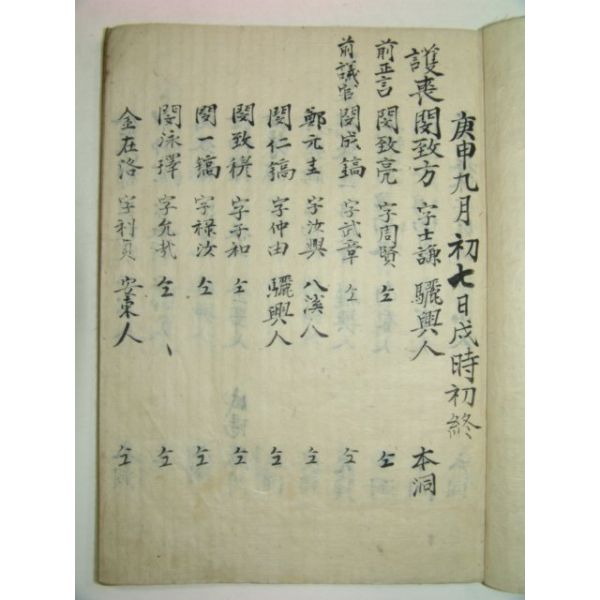 庚申九月初七日戌時初終
護喪 閔致方 字士謙 驪興人 本洞
前正言 閔致亮 字周賢 仝 仝
前議官 閔成鎬 字武章 仝 仝
鄭元圭 字汝興 八溪人 仝
閔仁鎬 字仲由 驪興人 仝
閔致稷 字子和 仝 仝
閔一鎬 字祿汝 仝 仝
閔泳璋 字允哉 仝 仝
金在洛 字利貞 安東人 仝